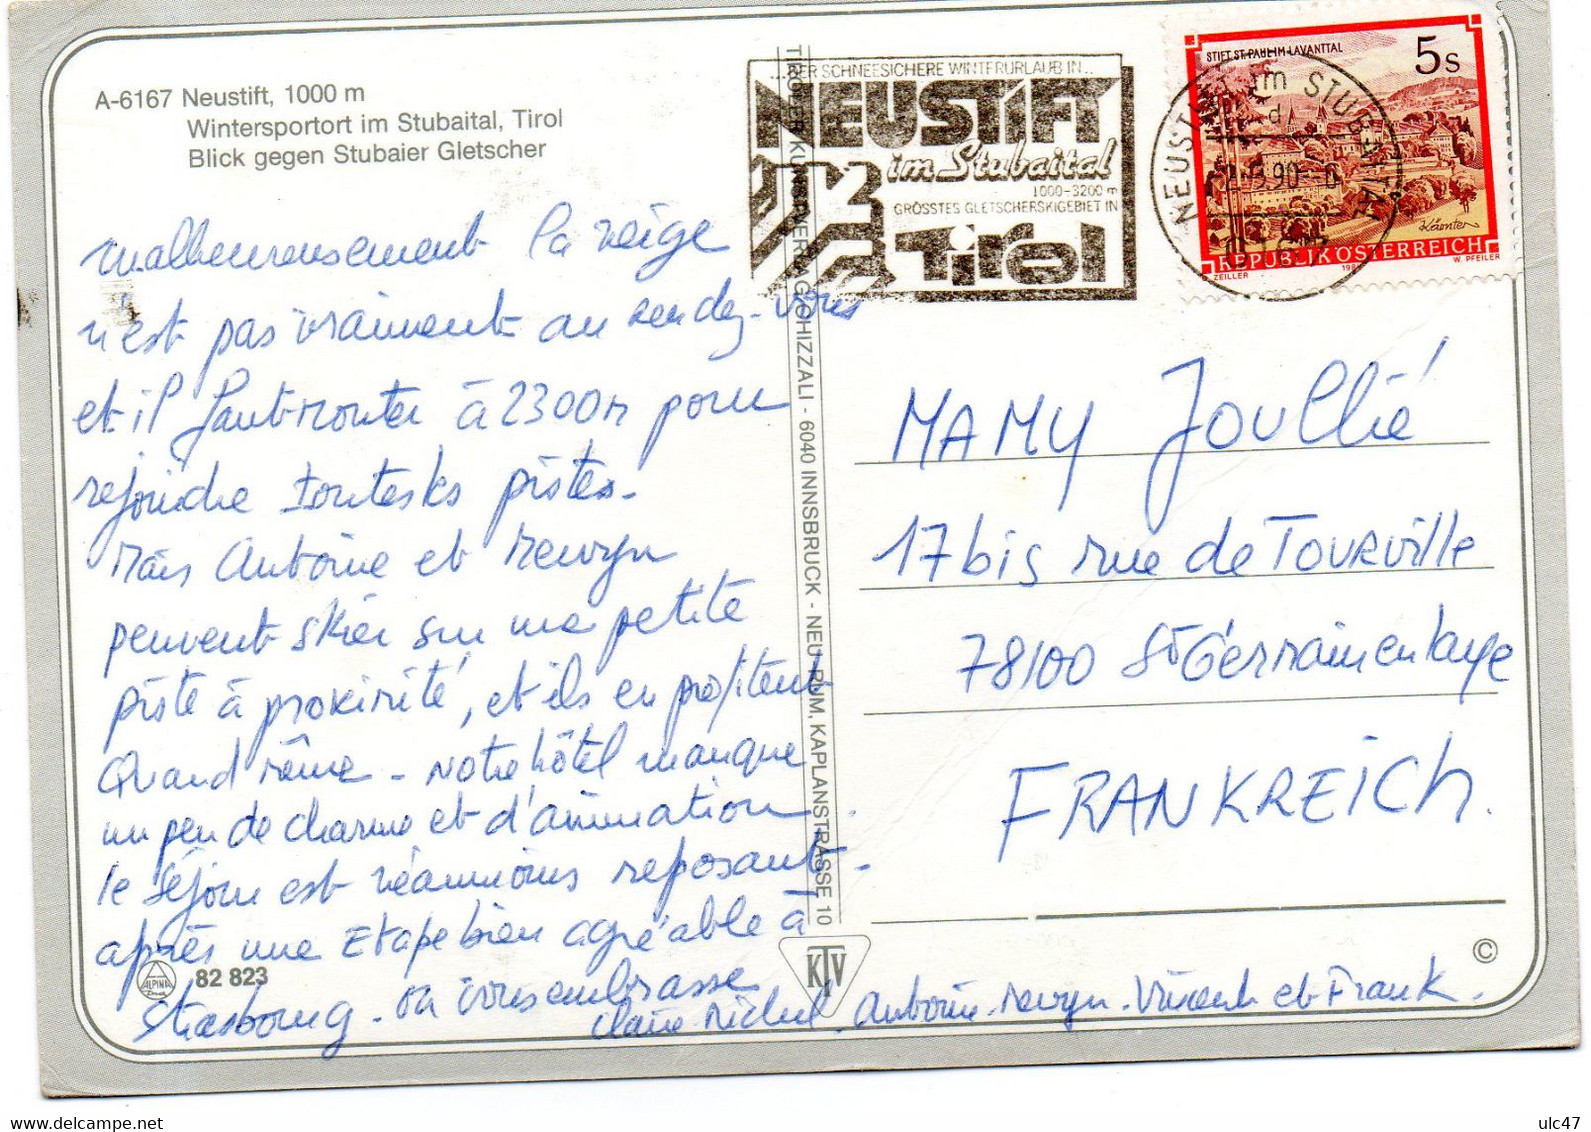 A-6167 Neustift, 1000 m
Wintersportort im Stubaital, Tirol
Blick gegen Stubaier Gletscher
malheureusement la neige
n'est pas vraiment au rendez-vous
et il faut monter à 2300m pour
rejoindre toutes les pistes.
mais Antoine et
peuvent skier sur une petite
piste à proximité, et ils en profitent
Quand même - Notre hôtel manque
un peu de charme et d'animation.
le séjour est néanmoins reposant.
après une Etape bien agréable à
Strasbourg. on vous embrasse
Claire Michel. Antoine. Vincent et Franck.
82 823
ALPINA
TIROLER KUNSTVERLAG CHIZZALI - 6040 INNSBRUCK - NEU-RUM, KAPLANSTRASSE 10
KTV
...DER SCHNEESICHERE WINTERURLAUB IN...
NEUSTIFT
im Stubaital
1000-3200 m
GRÖSSTES GLETSCHERSKIGEBIET IN
Tirol
NEUSTIFT im STUBAITAL
STIFT ST. PAUL IM LAVANTTAL
5 S
Kärnten
REPUBLIK ÖSTERREICH
ZEILLER
W. PFEILER
MAMY Joullié
17 bis rue de TOURville
78100 St Germain en laye
FRANKREICH.
©
delcampe.net
ulc47